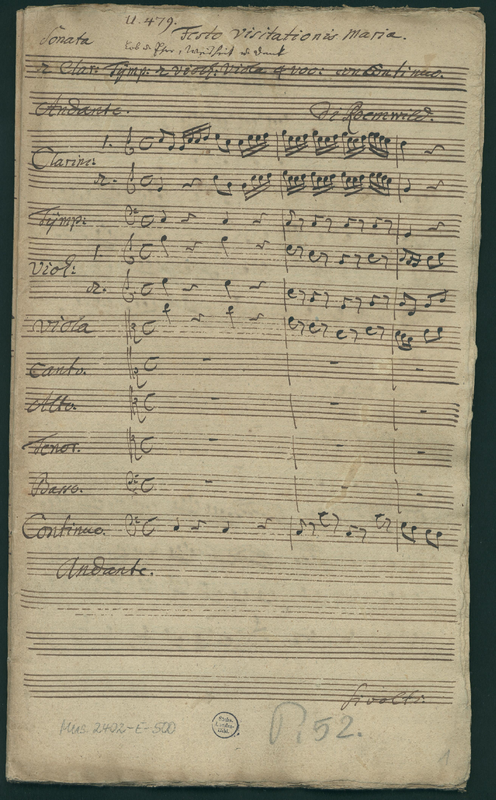 U. 479.
Sonata Festo Visitationis Mariæ.
Lob u Ehre, Weisheit u. Dank
2 Clar: Tÿmp: 2 violÿ: Viola 4 voc: con Continuo.
Andante. Di Roemhild.
1.
Clarin:
2.
Tÿmp:
1.
Viol:
2.
Viola
Canto.
Alto.
Tenor.
Basso.
Continuo.
Andante.
si volti.
Mus. 2402-E-500
52.
1